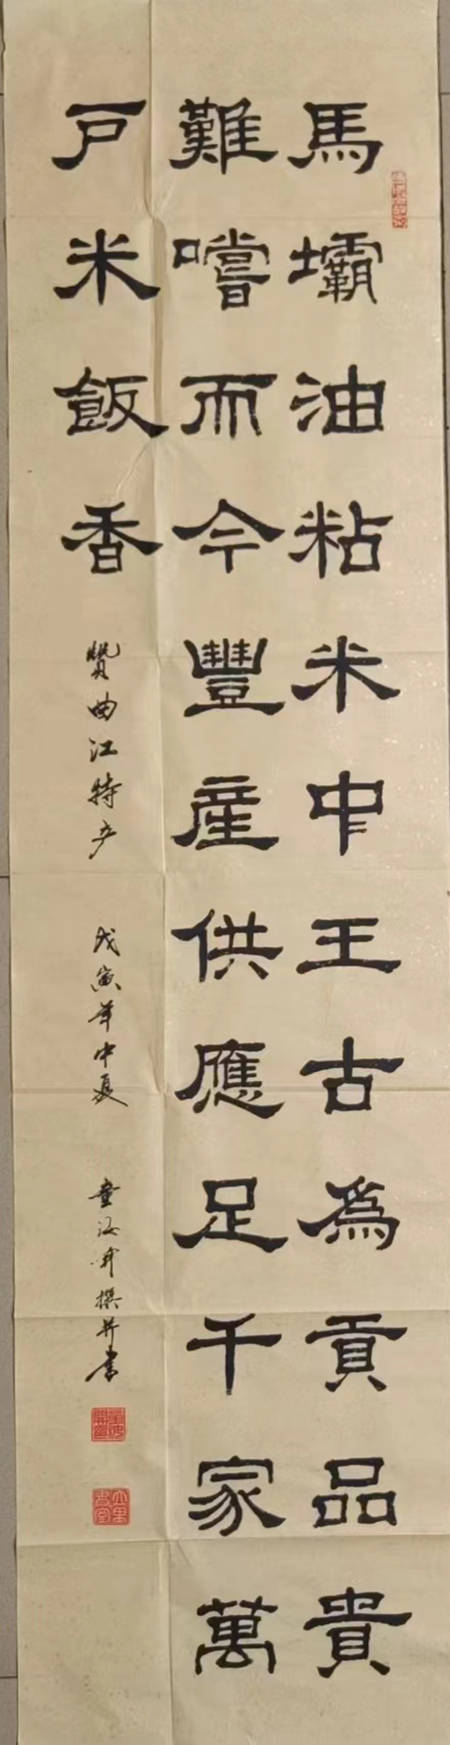 馬壩油粘米中王古為貢品貴
難嚐而今豐產供應足千家萬
戸米飯香
贊曲江特产
戊寅年中夏
撰并書